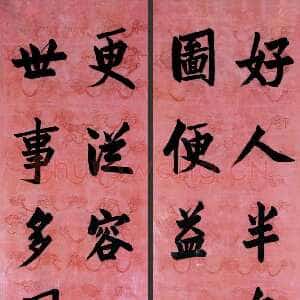 好人半
圖便益
更從容
世事多